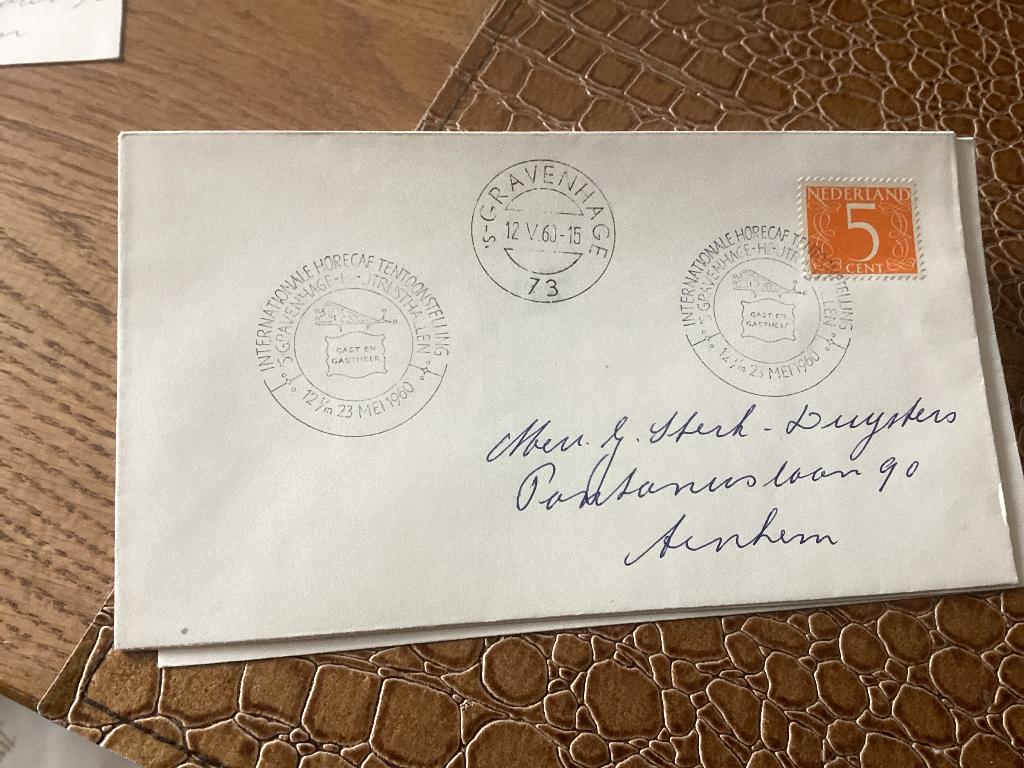 'S-GRAVENHAGE
12 V.60-15
73
NEDERLAND
5
CENT
INTERNATIONALE HORECAF TENTOONSTELLING
'S-GRAVENHAGE-HOUTRUSTHALLEN
GAST EN
GASTHEER
12 t/m 23 MEI 1960
INTERNATIONALE HORECAF TENTOONSTELLING
'S-GRAVENHAGE-HOUTRUSTHALLEN
GAST EN
GASTHEER
12 t/m 23 MEI 1960
Mevr. G. Sterk-Duysters
Pontanuslaan 90
Arnhem